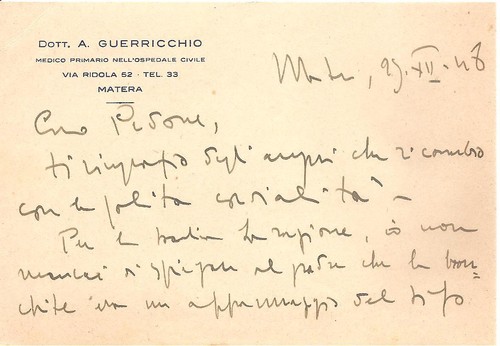 DOTT. A. GUERRICCHIO
MEDICO PRIMARIO NELL'OSPEDALE CIVILE
VIA RIDOLA 52 - TEL. 33
MATERA
Matera, 29.XII.48
Caro Pedone,
ti ringrazio degli auguri che ricambio
con la solita cordialità -
Per la ragione, io non
mancai di spiegare al padre che la bron
chite era un appannaggio del tifo